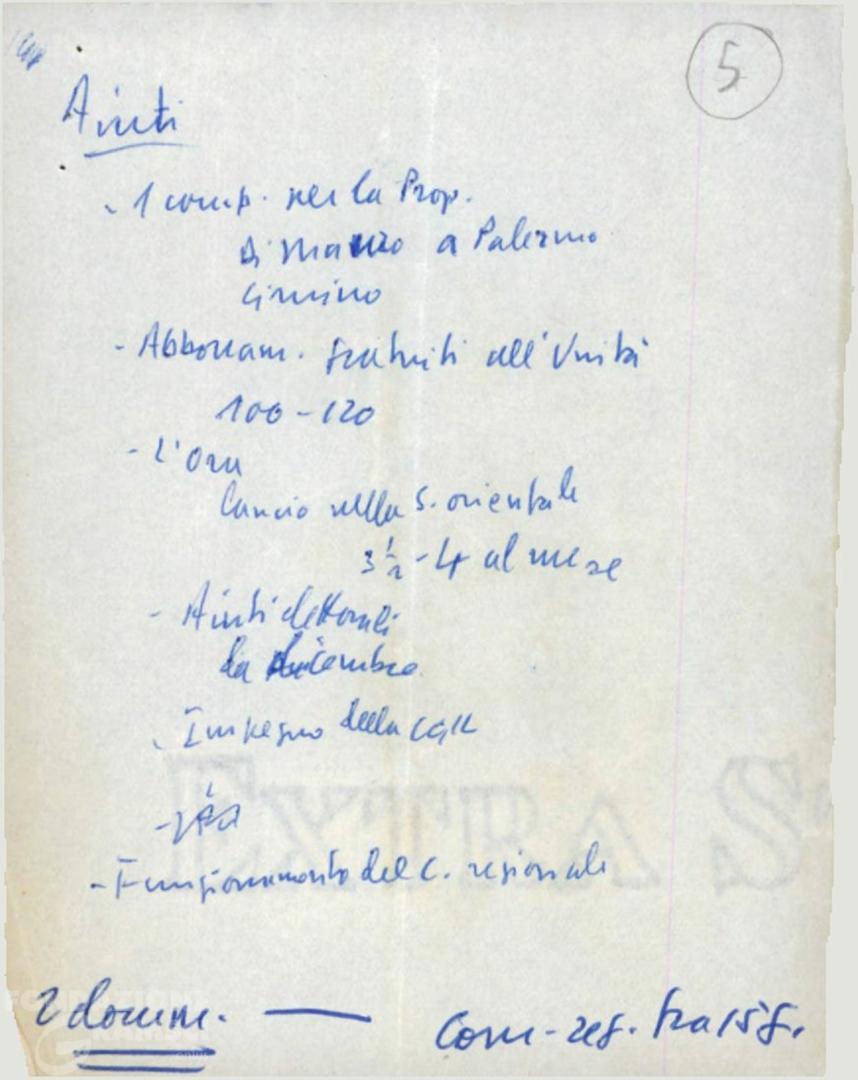 5
Aiuti
- 1 comp. per la Prop.
Di Mauro a Palermo
Cimino
- Abbonam. gratuiti all'Unità
100-120
- L'Ora
lancio nella S. orientale
3 1/2 - 4 al mese
- Aiuti elettorali
da dicembre
- Impegno della CGIL
- Funzionamento del C. regionale
2 docum. — Com. reg. fra 15 g.
EXTRA S